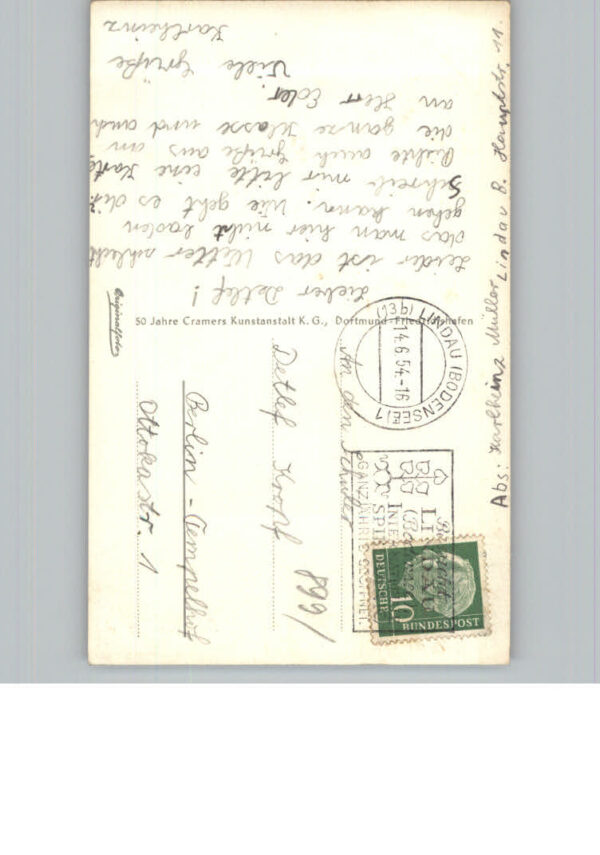 Lieber Detlef!
Leider ist das Wetter schlecht
das man hier nicht baden
gehen kann. Wie geht es dir.
Schreib mir bitte eine Karte
Richte auch Grüße aus an
die ganze Klasse und auch
an Herr Eder.
Viele Grüße
Karlheinz
Originalfoto
50 Jahre Cramers Kunstanstalt K.G., Dortmund-Friedrichshafen
Abs: Karlheinz Müller Lindau B. Hauptstr. 11.
(13b) LINDAU (BODENSEE) 1
14.6.54.-16
LI
INTE
SPIE
GANZJÄHRIG GEÖFFNET
DEUTSCHE
BUNDESPOST
10
An den Schüler
Detlef Kropf
899/
Berlin - Tempelhof
Ottokarstr. 1